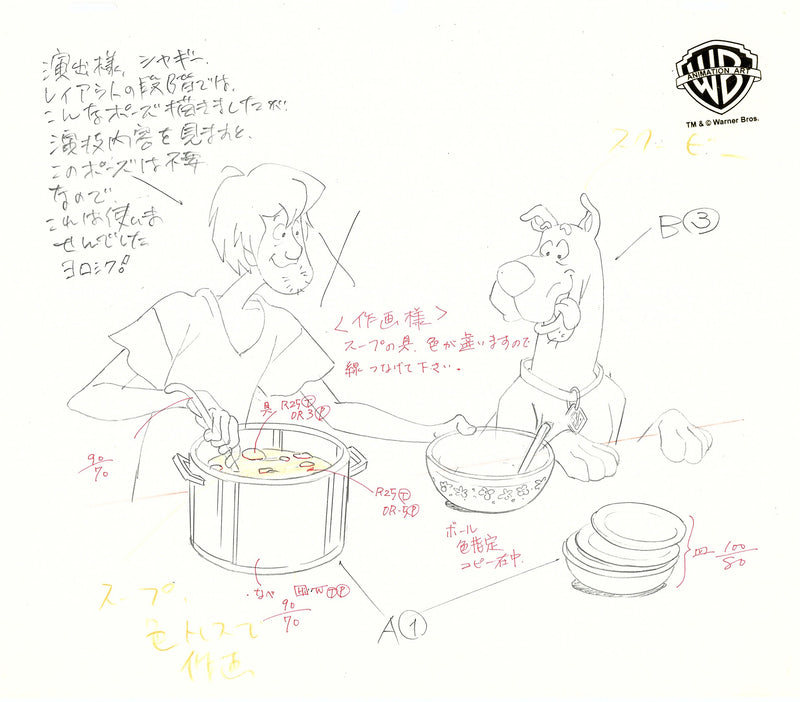 演出様、シャギー、
レイアウトの段階では、
こんなポーズ描きましたが
演技内容を見ますと、
このポーズは不要
なので、
これは使いま
せんでした
ヨロシク!
WB
ANIMATION ART
TM & © Warner Bros.
スクービー
B③
<作画様>
スープの具、色が違いますので
線つなげて下さい。
具 R25Ⓣ
OR3Ⓟ
90/70
R25Ⓣ
OR-5Ⓟ
ボール
色指定
コピー在中.
皿 100/80
なべ
90/70
A①
スープ、
色トレスで
作画